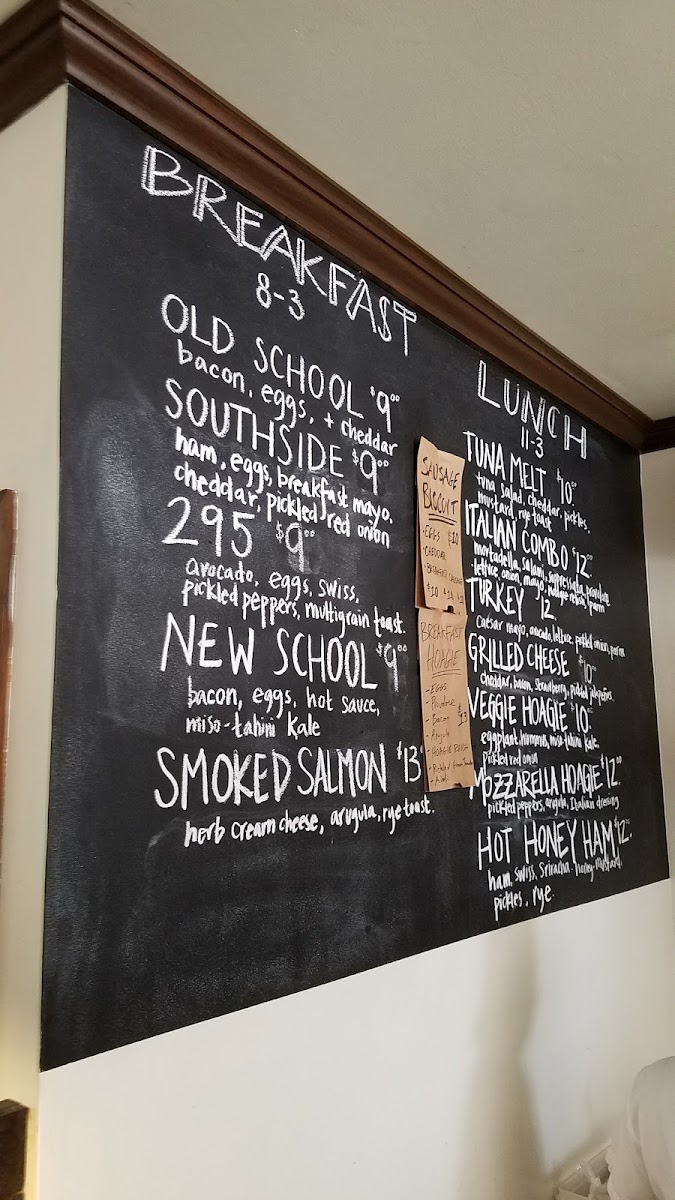 BREAKFAST
8-3
OLD SCHOOL $9⁰⁰
bacon, eggs, + cheddar
SOUTHSIDE $9⁰⁰
ham, eggs, breakfast mayo,
cheddar, pickled red onion
295 $9⁰⁰
avocado, eggs, swiss,
pickled peppers, multigrain toast.
NEW SCHOOL $9⁰⁰
bacon, eggs, hot sauce,
miso-tahini kale
SMOKED SALMON $13
herb cream cheese, arugula, rye toast.
SAUSAGE
BISCUIT
-EGGS $10
-CHEDDAR
-BREAKFAST SAUSAGE
BREAKFAST
HOAGIE
-EGGS
-Provolone
-Bacon $13
-Arugula
-HOAGIE
-Pickled
LUNCH
11-3
TUNA MELT $10⁰⁰
tuna salad, cheddar, pickles,
mustard, rye toast
ITALIAN COMBO $12⁰⁰
mortadella, salami, supressata, provolone
lettuce, onion, mayo, parm
TURKEY $12
caesar mayo, avocado, lettuce, pickled onion, parm
GRILLED CHEESE $10⁰⁰
cheddar, bacon, strawberry, pickled jalapeños.
VEGGIE HOAGIE $10⁰⁰
eggplant, hummus, miso-tahini kale,
pickled red onion
MOZZARELLA HOAGIE $12⁰⁰
pickled peppers, arugula, Italian dressing
HOT HONEY HAM $12⁰⁰
ham, swiss, Sriracha-honey-mustard,
pickles, rye.